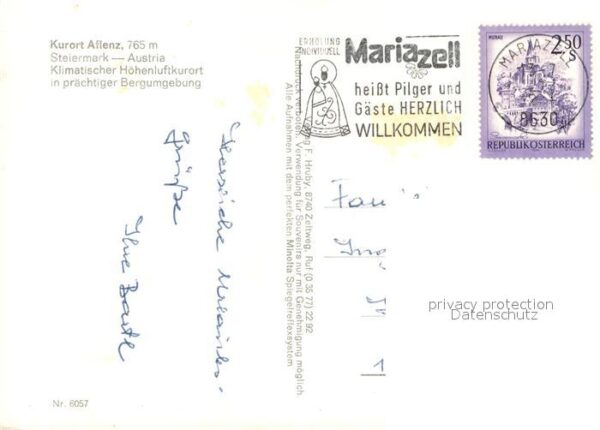 Kurort Aflenz, 765 m
Steiermark — Austria
Klimatischer Höhenluftkurort
in prächtiger Bergumgebung
ERHOLUNG
INDIVIDUELL
Mariazell
heißt Pilger und
Gäste HERZLICH
WILLKOMMEN
MURAU
2.50
MARIAZELL
8630
REPUBLIK ÖSTERREICH
F. Hruby, 8740 Zeltweg, Ruf (0 35 77) 22 92
Nachdruck verboten. Verwendung für Souvenirs nur mit Genehmigung möglich.
Alle Aufnahmen mit dem perfekten Minolta Spiegelreflexsystem
Herzliche Urlaubs-
grüße
Ihre
Fam
Ing
1
privacy protection
Datenschutz
Nr. 6057